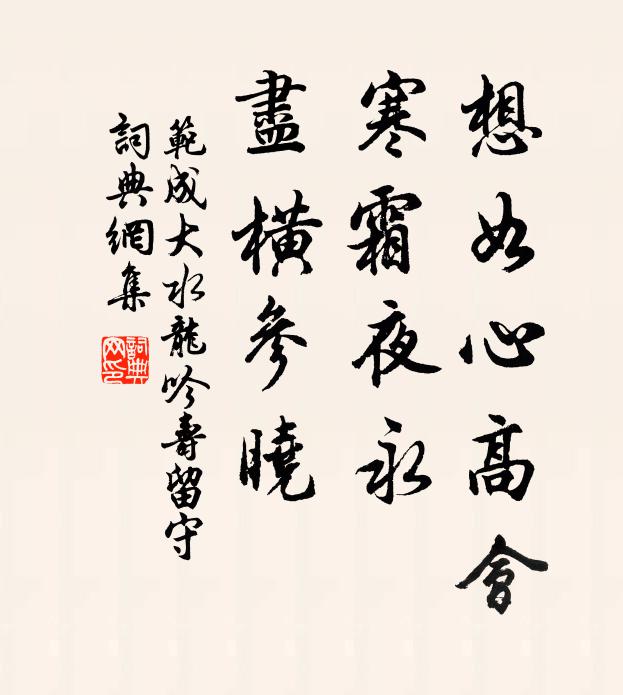 想如心高會
寒霜夜永
盡橫參曉
範成大水龍吟壽留守
詞典網集
詞典網印